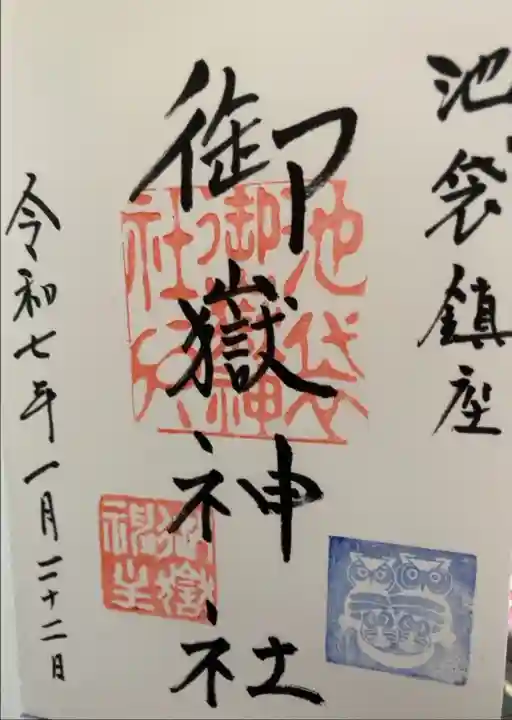 池袋鎮座
御嶽神社
池袋
御嶽神
社印
令和七年一月二十二日